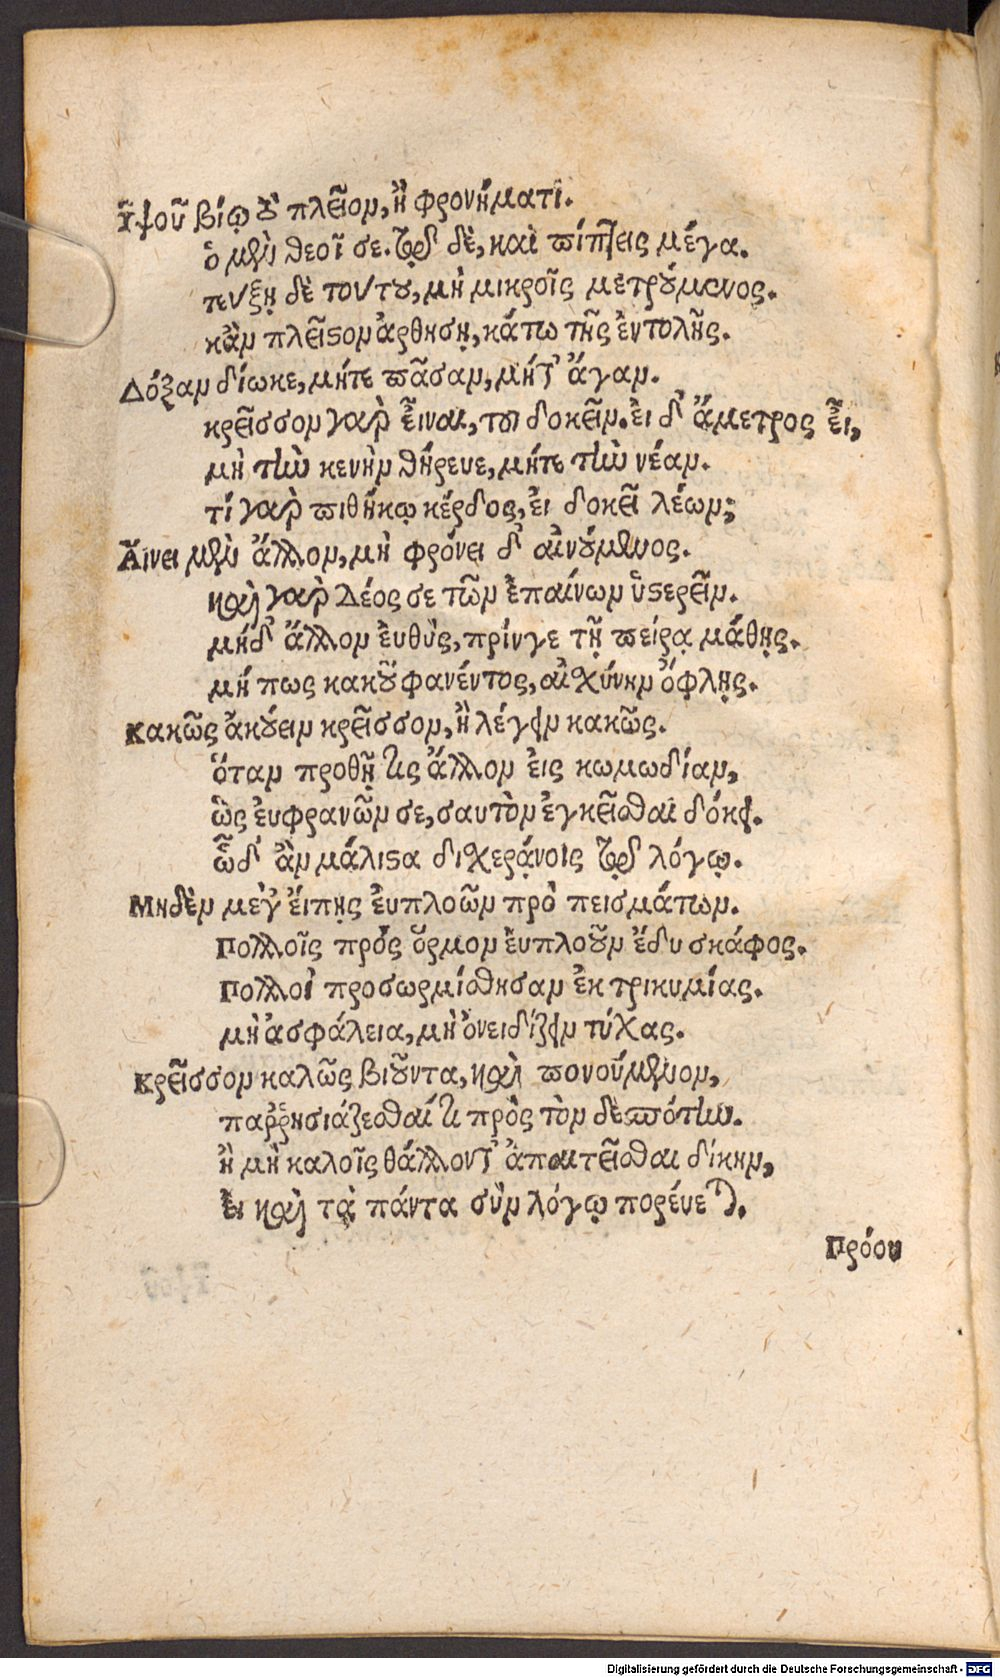 Ὑψοῦ βίῳ οὐ πλεῖον, ἢ φρονήματι.
ὁ μὲν θεοῖ σε. τῷ δὲ, καὶ πίπτεις μέγα.
τεύξῃ δὲ τούτου, μὴ μικροῖς μετρούμενος.
κἂν πλεῖστον ἀρθήσῃ, κάτω τῆς ἐντολῆς.
Δόξαν δίωκε, μήτε πᾶσαν, μήτ' ἄγαν.
κρεῖσσον γὰρ εἶναι, τοῦ δοκεῖν. εἰ δ' ἄμετρος εἶ,
μὴ τὴν κενὴν θήρευε, μήτε τὴν νέαν.
τί γὰρ πιθήκῳ κέρδος, εἰ δοκεῖ λέων;
Αἴνει μὲν ἄλλον, μὴ φρόνει δ' αἰνούμενος.
καὶ γὰρ Δέος σε τῶν ἐπαίνων ὑστερεῖν.
μήδ' ἄλλον εὐθὺς, πρίνγε τῇ πείρᾳ μάθῃς.
μή πως κακοῦ φανέντος, αἰσχύνην ὄφλῃς.
Κακῶς ἀκούειν κρεῖσσον, ἢ λέγειν κακῶς.
ὅταν προθῇ τις ἄλλον εἰς κωμωδίαν,
ὡς εὐφρανῶν σε, σαυτὸν ἐγκεῖσθαι δόκει.
ὧδ' ἂν μάλιστα δισχεράνοις τῷ λόγῳ.
Μηδὲν μέγ' εἴπῃς εὐπλοῶν πρὸ πεισμάτων.
Πολλοῖς πρὸς ὅρμον εὐπλοῦν ἔδυ σκάφος.
Πολλοὶ προσωρμίσθησαν ἐκ τρικυμίας.
μὴ ἀσφάλεια, μὴ ὀνειδίζειν τύχας.
Κρεῖσσον καλῶς βιοῦντα, καὶ πονούμενον,
παῤῥησιάζεσθαί τι πρὸς τὸν δεσπότην.
ἢ μὴ καλοῖς θάλλοντ' ἀπαιτεῖσθαι δίκην,
εἰ καὶ τὰ πάντα σὺν λόγῳ πορεύεται.
Πρόσυ